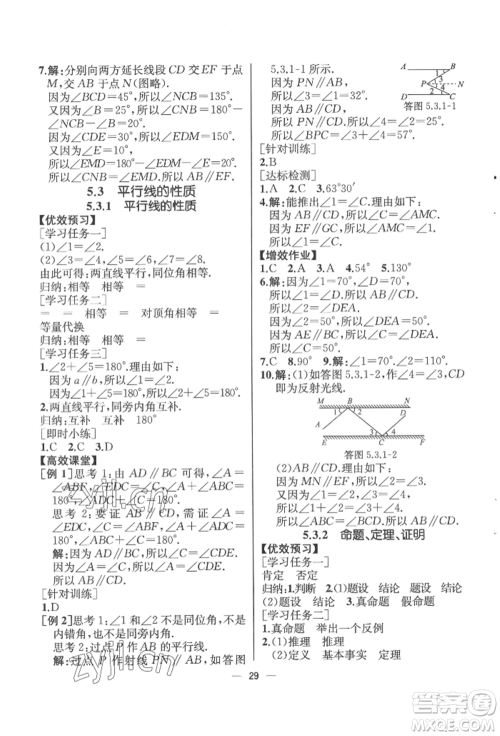 7.解:分别向两方延长线段 CD 交 EF 于点
M,交 AB 于点 N(图略).
因为∠BCD=45°,所以∠NCB=135°.
又因为∠ABC=25°,
所以∠CNB=20°.
因为∠CDE=30°,所以∠EDM=150°.
又因为∠DEF=10°,
所以∠EMD=180°-∠EDM-∠DEF=20°.
所以∠CNB=∠EMD.所以 AB∥EF.
5.3 平行线的性质
5.3.1 平行线的性质
【优效预习】
[学习任务一]
(1)∠1=∠2.
(2)∠3=∠4,∠5=∠6,∠7=∠8.
由此可得:两直线平行,同位角相等.
归纳:相等 =
[学习任务二]
= = 相等 = 对顶角相等 =
等量代换
归纳:相等 =
[学习任务三]
1.∠2+∠5=180°.理由如下:
因为 a∥b,所以∠1=∠2.
因为∠1+∠5=180°,所以∠2+∠5=180°.
2.两直线平行,同旁内角互补.
归纳:互补 互补 180°
[即时小练]
1.C 2.C 3.D
【高效课堂】
[例 1]思考 1:由 AD∥BC 可得∠A=
∠ABF,∠C=∠CDE,∠A+∠ABC=
180°,∠ADC+∠C=180°.
思考 2:要证 AB∥CD,需证∠A=
∠CDE或∠C=∠ABF或∠A+∠ADC=
180°或∠C+∠ABC=180°.
解:因为 AD∥BC,所以∠A=∠ABF.
因为∠A=∠C,所以∠C=∠ABF.
所以 AB∥CD.
[针对训练]
1.D
[例 2]思考 1:∠1 和∠2 不是同位角,不是
内错角,也不是同旁内角.
思考 2:过点 P 作 AB 的平行线.
解:过点 P 作射线 PN∥AB,如答图
5.3.1-1 所示.
因为 PN∥AB,AB∥CD,
所以 PN∥CD.
所以∠4=∠2=28°.
因为 PN∥AB,
所以∠3=∠1=32°.
所以∠BPC=∠3+∠4=60°.
答图 5.3.1-1
[针对训练]
2.B
[达标检测]
1.A 2.C 3.63°30′
4.解:能推出∠A=∠C.理由如下:
因为 AB∥CD,所以∠C=∠AMC.
因为 AD∥BC,所以∠A=∠AMC.
所以∠A=∠C.
【增效作业】
1.C 2.A 3.A 4.54° 5.130°
6.解:因为∠1=70°,∠2=70°,
所以∠1=∠2.所以 AB∥CD.
又因为 CD∥EF,所以 AB∥EF.
所以∠3=180°-∠A=68°.
7.C 8.90° 9.A
10.解:(1)如答图 5.3.1-2,作∠4=∠3,CD
即为反射光线.
答图 5.3.1-2
(2)AB∥CD.理由如下:
因为 MN∥EF,所以∠2=∠3.
因为∠1=∠2,∠3=∠4,
所以∠1=∠2=∠3=∠4.
所以∠ABC=180°-2∠2,
∠BCD=180°-2∠3.
所以∠ABC=∠BCD.所以 AB∥CD.
5.3.2 命题、定理、证明
【优效预习】
[学习任务一]
肯定 否定
归纳:1.判断 2.(1)题设 结论 题设
结论 (2)题设 结论 真命题 假命题
[学习任务二]
1.真命题 举出一个反例
归纳:(1)推理 推理
(2)定义 基本事实 定理
29